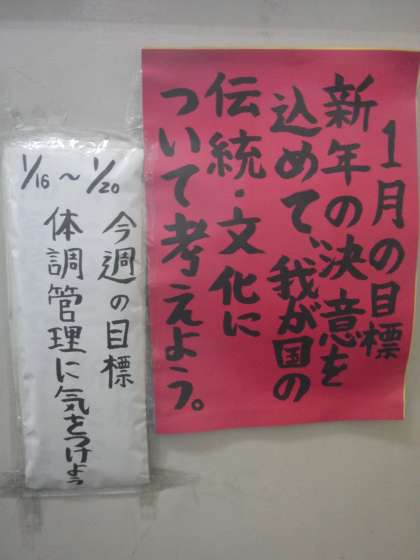 1月の目標
新年の決意を
込めて、我が国の
伝統・文化に
ついて考えよう。
1/16～1/20
今週の目標
体調管理に気をつけよう